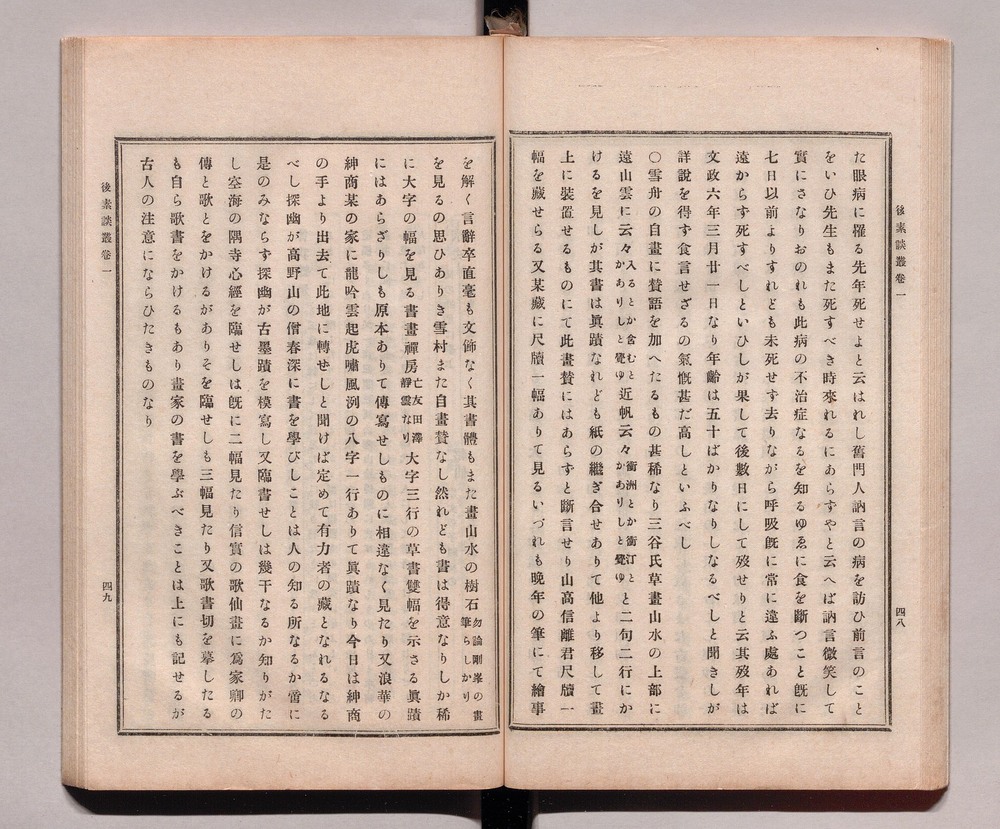 後素談叢卷一
四八
た眼病に罹る先年死せよと云はれし舊門人訥言の病を訪ひ前言のこと
をいひ先生もまた死すべき時來れるにあらずやと云へば訥言微笑して
實にさなりおのれも此病の不治症なるを知るゆゑに食を斷つこと既に
七日以前よりすれども未死せす去りながら呼吸既に常に違ふ處あれば
遠からす死すべしといひしが果して後數日にして歿せりと云其歿年は
文政六年三月廿一日なり年齡は五十ばかりなりしなるべしと聞きしが
詳說を得す食言せざるの氣慨甚だ高しといふべし
〇雪舟の自畫に賛語を加へたるもの甚稀なり三谷氏草畫山水の上部に
遠山雲に云々入るとか含むとかありしと覺ゆ近帆云々衝洲とか衝汀とかありしと覺ゆと二句二行にか
けるを見しが其書は眞蹟なれども紙の繼ぎ合せありて他より移して畫
上に裝置せるものにて此畫賛にはあらすと斷言せり山高信離君尺牘一
幅を藏せらる又某藏に尺牘一幅ありて見るいづれも晩年の筆にて繪事
を解く言辭卒直毫も文飾なく其書體もまた畫山水の樹石勿論剛峯の畫筆らしかり
を見るの思ひありき雪村また自畫賛なし然れども書は得意なりしか稀
に大字の幅を見る書畫禪房亡友田澤靜雲なり大字三行の草書雙幅を示さる眞蹟
にはあらざりしも原本ありて傳寫せしものに相違なく見たり又浪華の
紳商某の家に龍吟雲起虎嘯風洌の八字一行ありて眞蹟なり今日は紳商
の手より出去て此地に轉せしと聞けば定めて有力者の藏となれるなる
べし探幽が高野山の僧春深に書を學びしことは人の知る所なるか啻に
是のみならす探幽が古墨蹟を模寫し又臨書せしは幾干なるか知りがた
し空海の隅寺心經を臨せしは既に二幅見たり信實の歌仙畫に爲家卿の
傳と歌とをかけるがありそを臨せしも三幅見たり又歌書切を摹したる
も自ら歌書をかけるもあり畫家の書を學ぶべきことは上にも記せるが
古人の注意にならひたきものなり
後素談叢卷一
四九